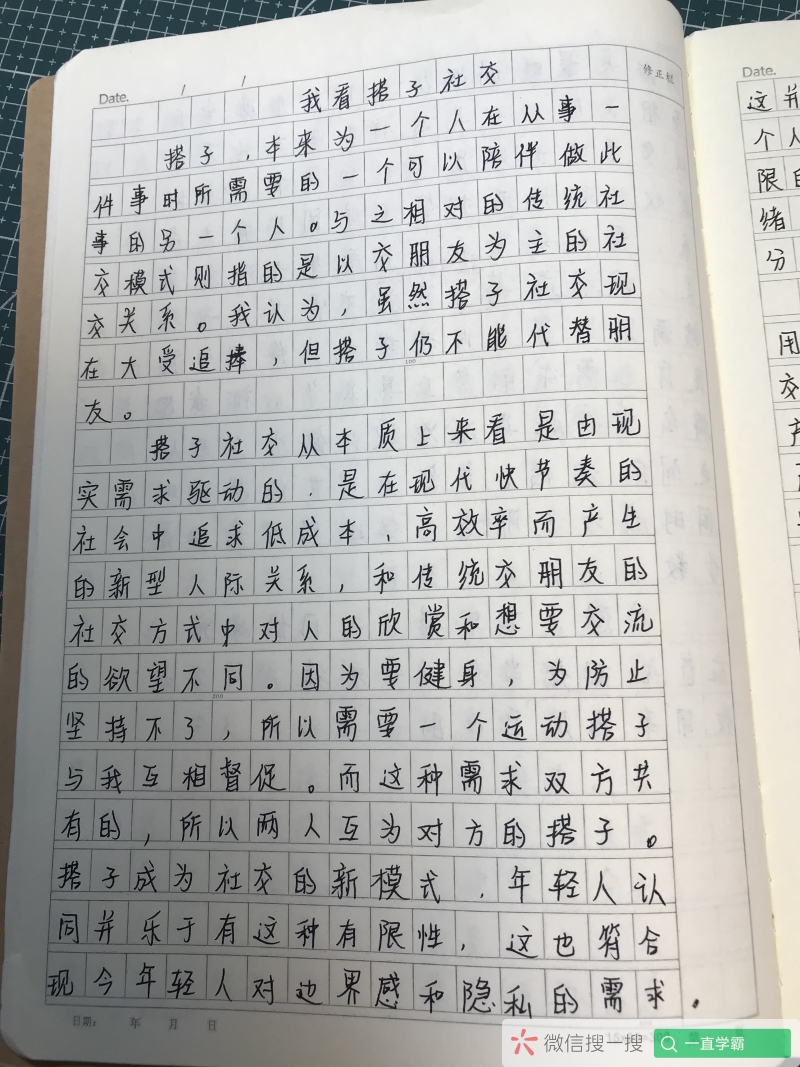 Date.
我看搭子社交
修正栏
搭子，本来为一个人在从事一
件事时所需要的一个可以陪伴做此
事的另一个人。与之相对的传统社
交模式则指的是以交朋友为主的社
交关系。我认为，虽然搭子社交现
在大受追捧，但搭子仍不能代替朋
100
友。
搭子社交从本质上来看是由现
实需求驱动的，是在现代快节奏的
社会中追求低成本，高效率而产生
的新型人际关系，和传统交朋友的
社交方式中对人的欣赏和想要交流
的欲望不同。因为要健身，为防止
200
坚持不了，所以需要一个运动搭子
与我互相督促。而这种需求双方共
有的，所以两人互为对方的搭子。
搭子成为社交的新模式，年轻人认
同并乐于有这种有限性，这也符合
现今年轻人对边界感和隐私的需求．
日期： 年 月 日
Date.
这并
个人
限的
绪
分
用
交
产
微信搜一搜
一直学霸